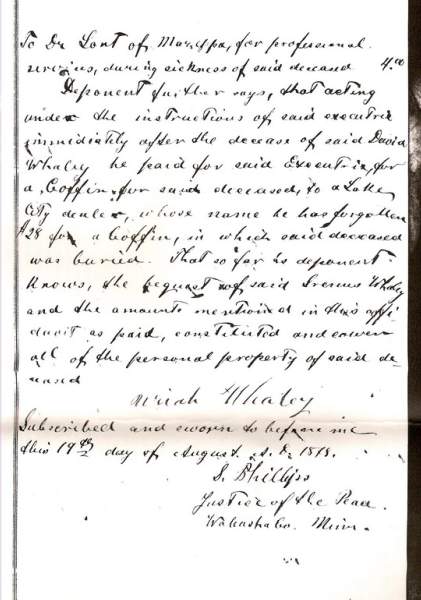 To Dr Lont of Mazeppa, for professional
services, during sickness of said deceased 4.00
Deponent further says, that acting
under the instructions of said executrix
immediately after the decease of said David
Whaley he paid for said Executrix, for
a Coffin for said deceased, to a Lake
City dealer, whose name he has forgotten
$28 for a Coffin, in which said deceased
was buried. That so far as deponent
knows, the bequest of said Whaley
and the amounts mentioned in this affi
davit as paid, constituted and
all of the personal property of said de
ceased
Uriah Whaley
Subscribed and sworn to before me
this 19th day of August A.D. 1878.
S. Phillips
Justice of the Peace
Wabasha Co. Minn.